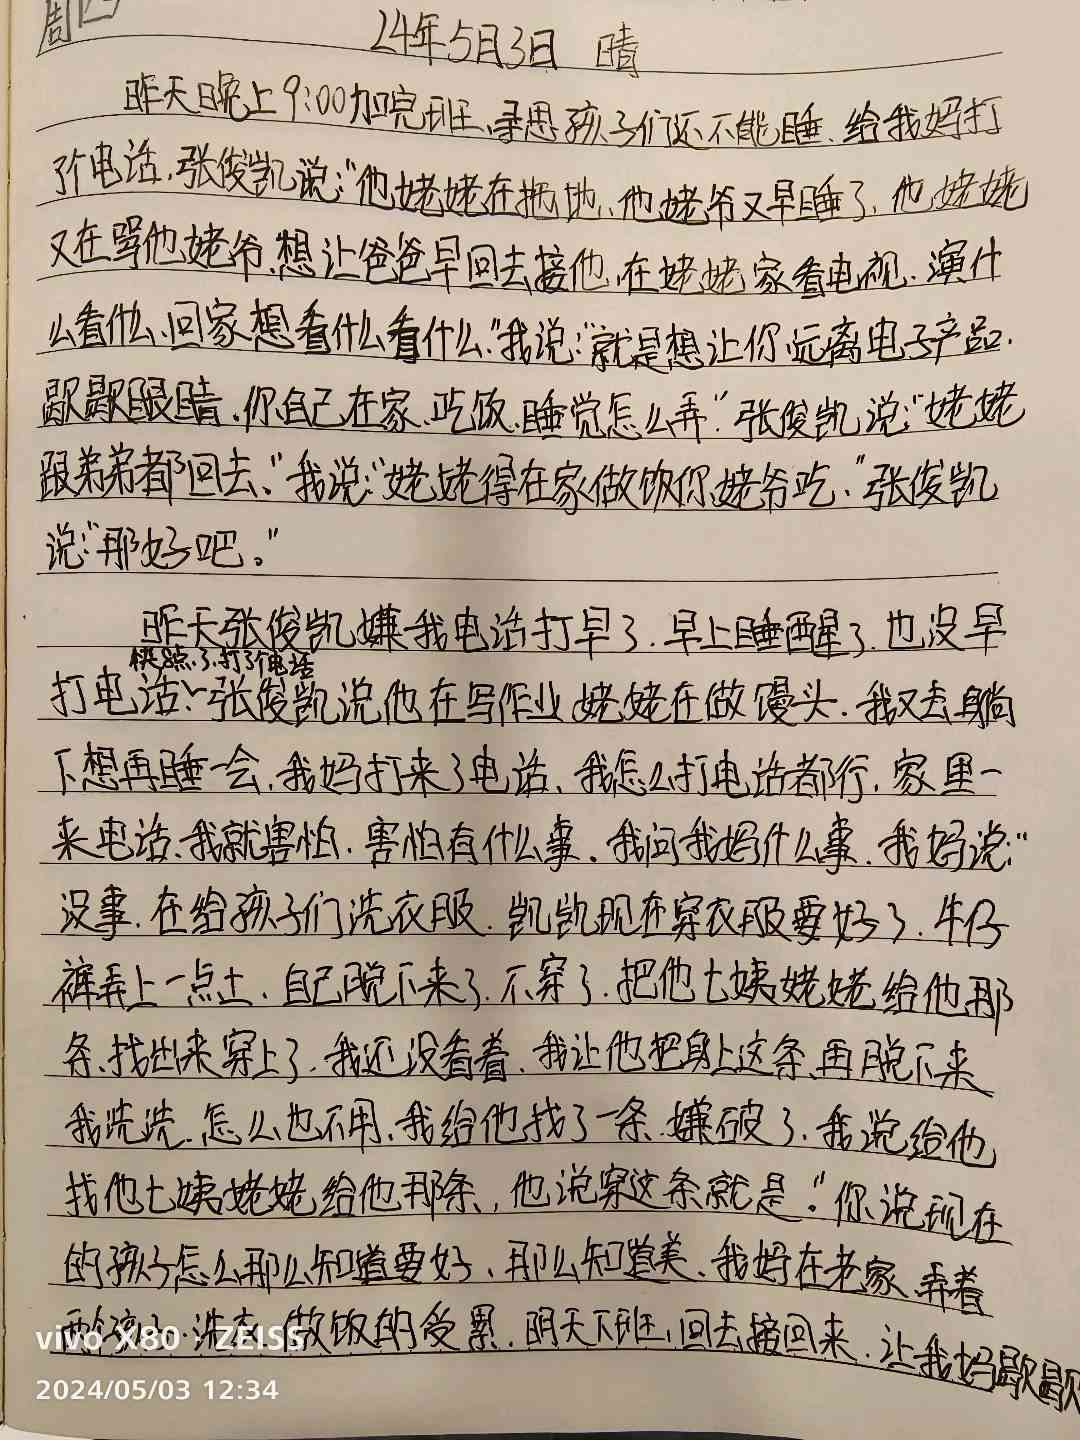 周四
24年5月3日 晴
昨天晚上9:00加完班、寻思孩子们还不能睡、给我妈打
了个电话、张俊凯说:"他姥姥在拖地、他姥爷又早睡了、他姥姥
又在骂他姥爷、想让爸爸早回去接他、在姥姥家看电视、演什
么看什么、回家想看什么看什么"我说:"就是想让你远离电子产品、
歇歇眼睛、你自己在家、吃饭、睡觉怎么弄"张俊凯说:"姥姥
跟弟弟都回去。"我说:"姥姥得在家做饭你姥爷吃。"张俊凯
说:"那好吧。"
昨天张俊凯嫌我电话打早了、早上睡醒了、也没早
快8点了打了个电话
打电话、张俊凯说他在写作业姥姥在做馒头、我又去躺
下想再睡一会、我妈打来了电话、我怎么打电话都行、家里一
来电话、我就害怕、害怕有什么事。我问我妈什么事、我妈说:"
没事、在给孩子们洗衣服、凯凯现在穿衣服要好了、牛仔
裤弄上一点土、自己脱下来了、不穿了、把他七姨姥姥给他那
条、找出来穿上了、我还没看着、我让他把身上这条、再脱下来
我洗洗、怎么也不用、我给他找了一条、嫌破了、我说给他
找他七姨姥姥给他那条、他说穿这条就是。"你说现在
的孩子怎么那么知道要好、那么知道美、我妈在老家弄着
两个孩子、洗衣、做饭的受累、明天下班、回去接回来、让我妈歇歇
vivo X80 · ZEISS
2024/05/03 12:34